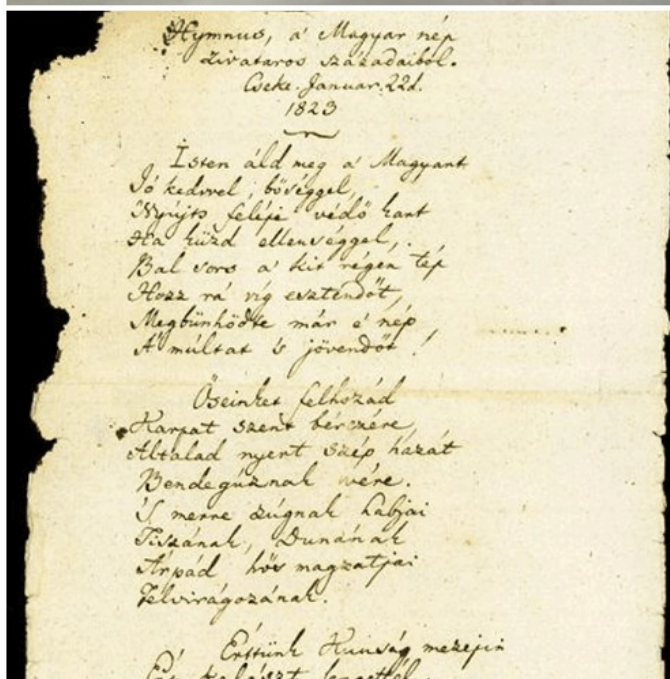 Hymnus, a' Magyar nép
zivataros századaiból.
Cseke. Januar. 22d.
1823
Isten áld meg a' Magyart
Jó kedvvel, bőséggel,
Nyújts feléje védő kart
Ha küzd ellenséggel,
Bal sors a' kit régen tép
Hozz rá víg esztendőt,
Megbünhődte már e' nép
A' múltat 's jövendőt!
Őseinket felhozád
Kárpát szent bérczére,
Általad nyert szép hazát
Bendegúznak vére.
'S merre zúgnak habjai
Tiszának, Dunának
Árpád hős magzatjai
Felvirágozának.
Értünk Kunság mezején
Ért kalászt lengettél,